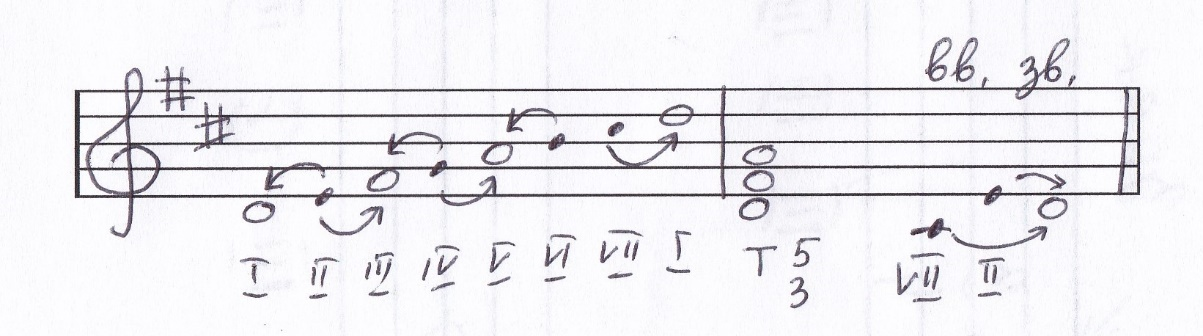 вв. зв.
I II III IV V VI VII I T 5 VII II
3